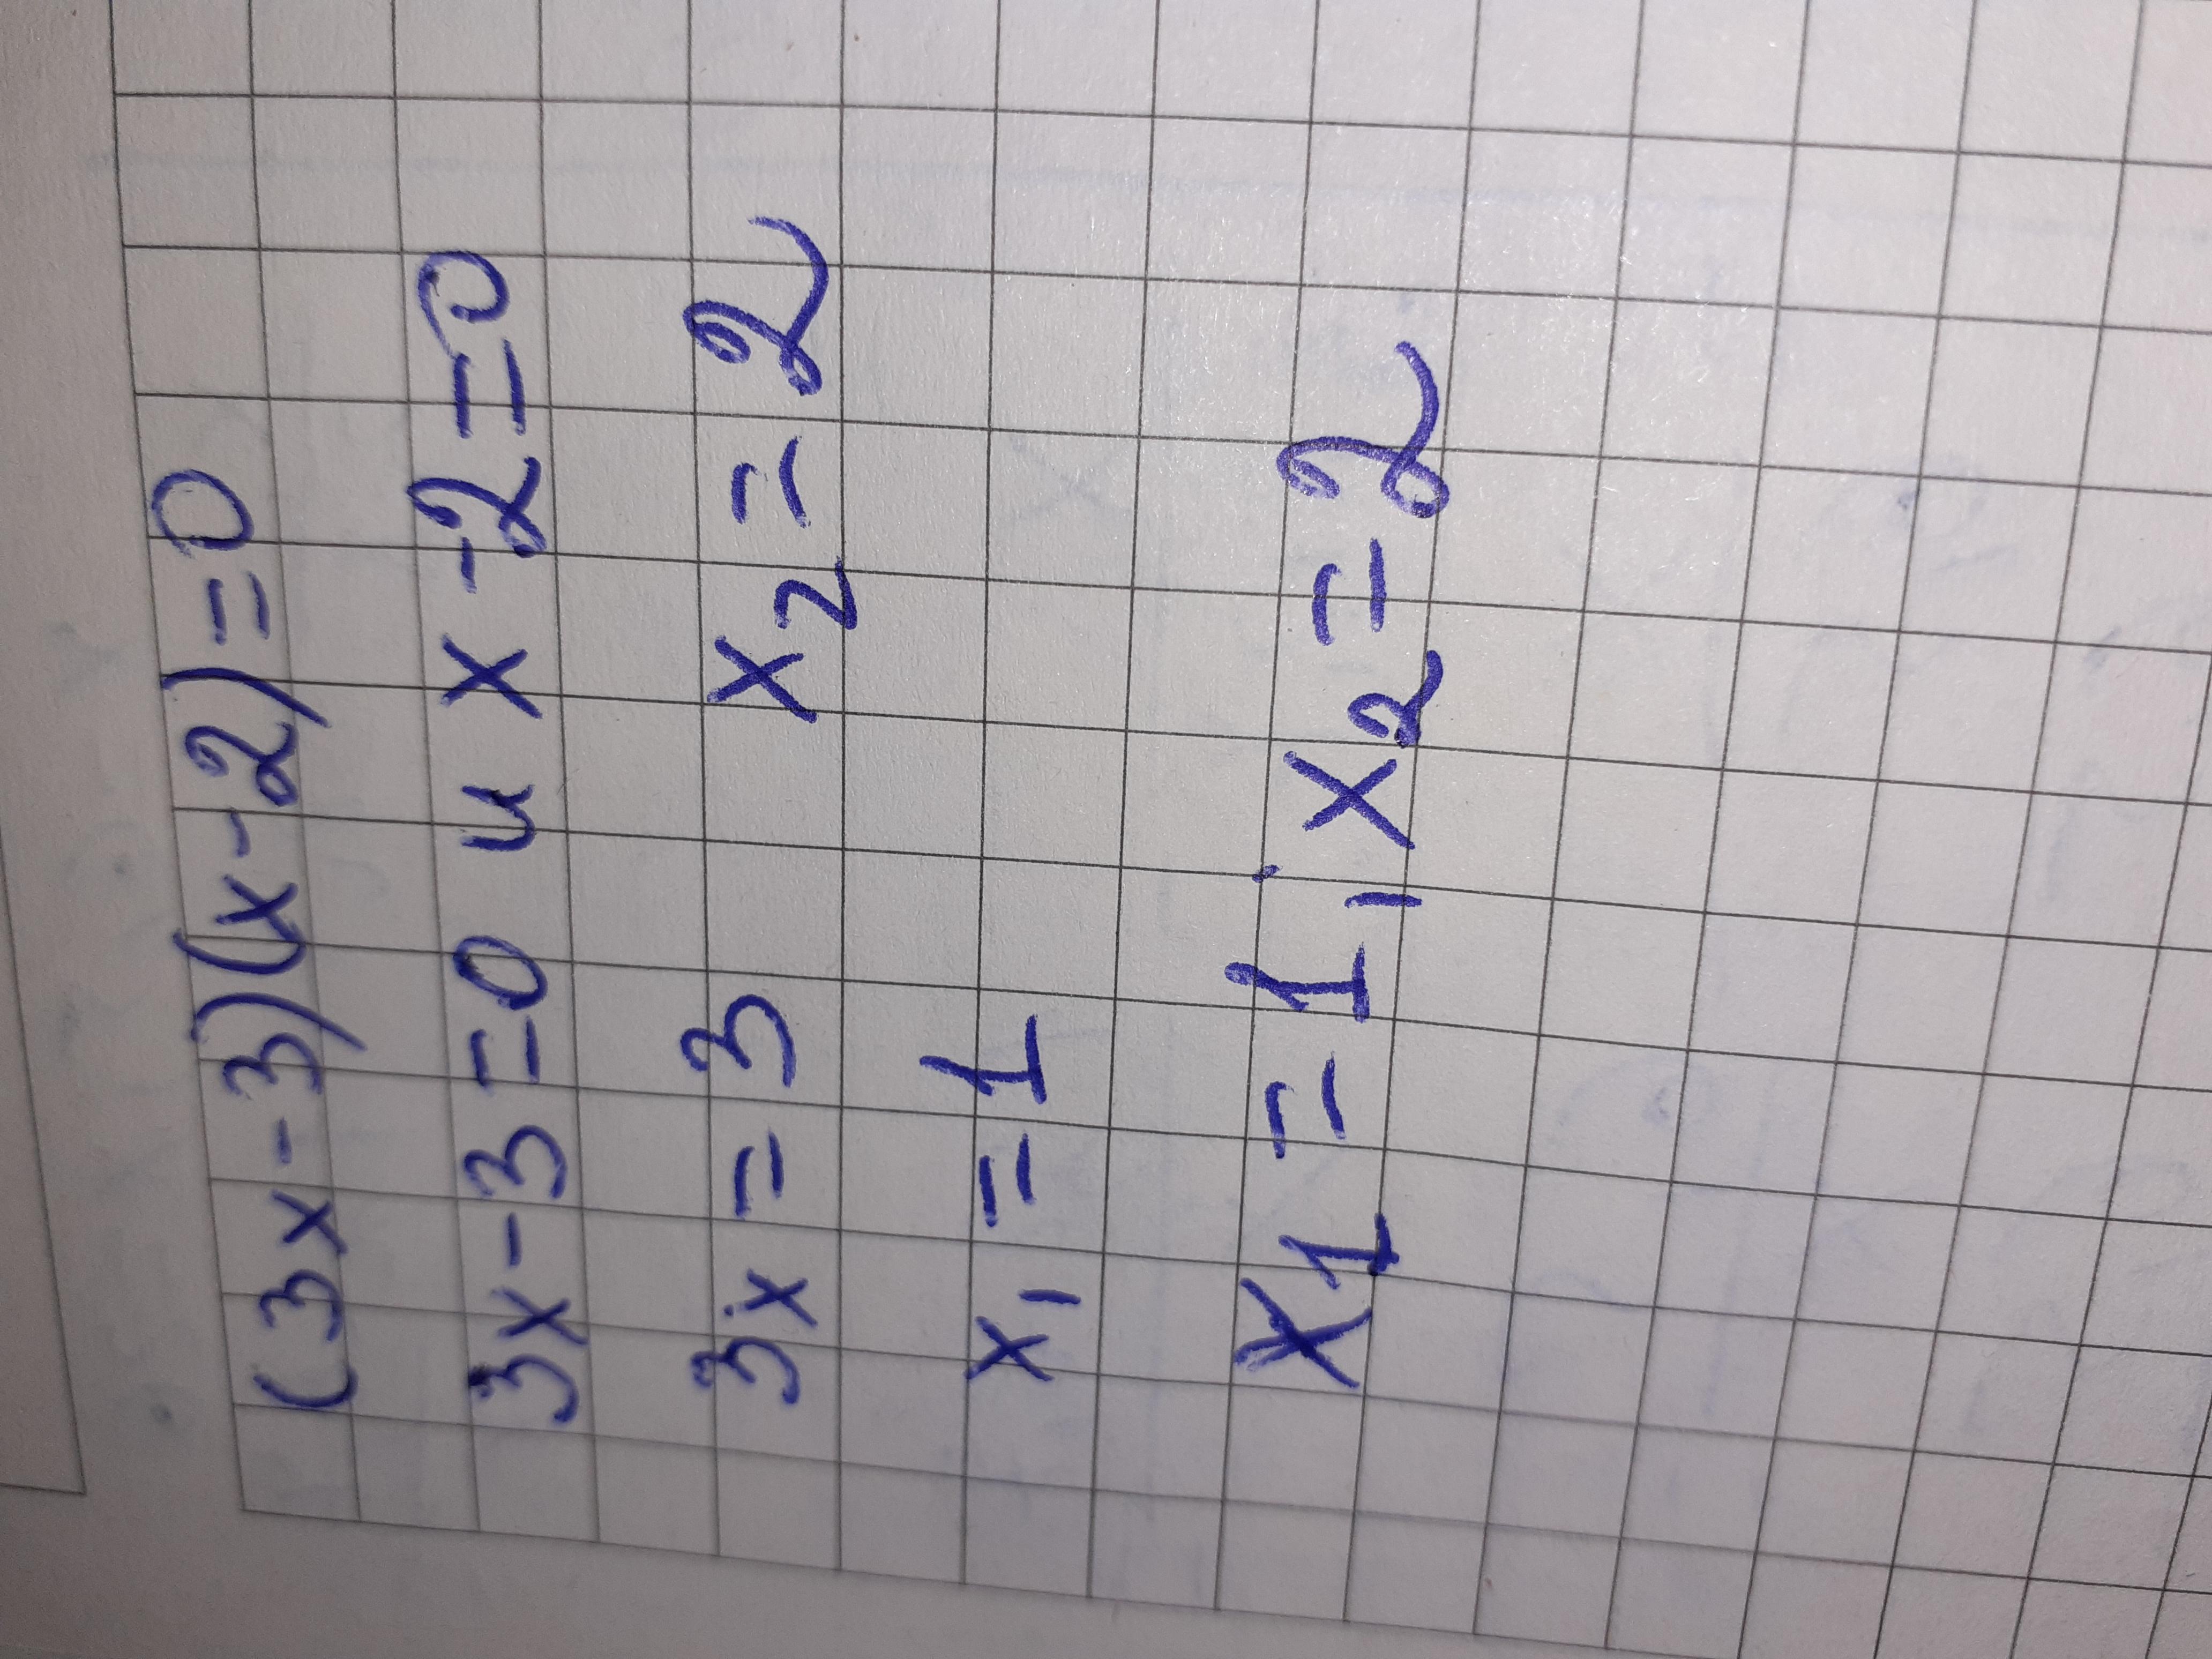 (3x-3)(x-2)=0
3x-3=0 и x-2=0
3x=3 x₂=2
x₁=1
x₁=1, x₂=2